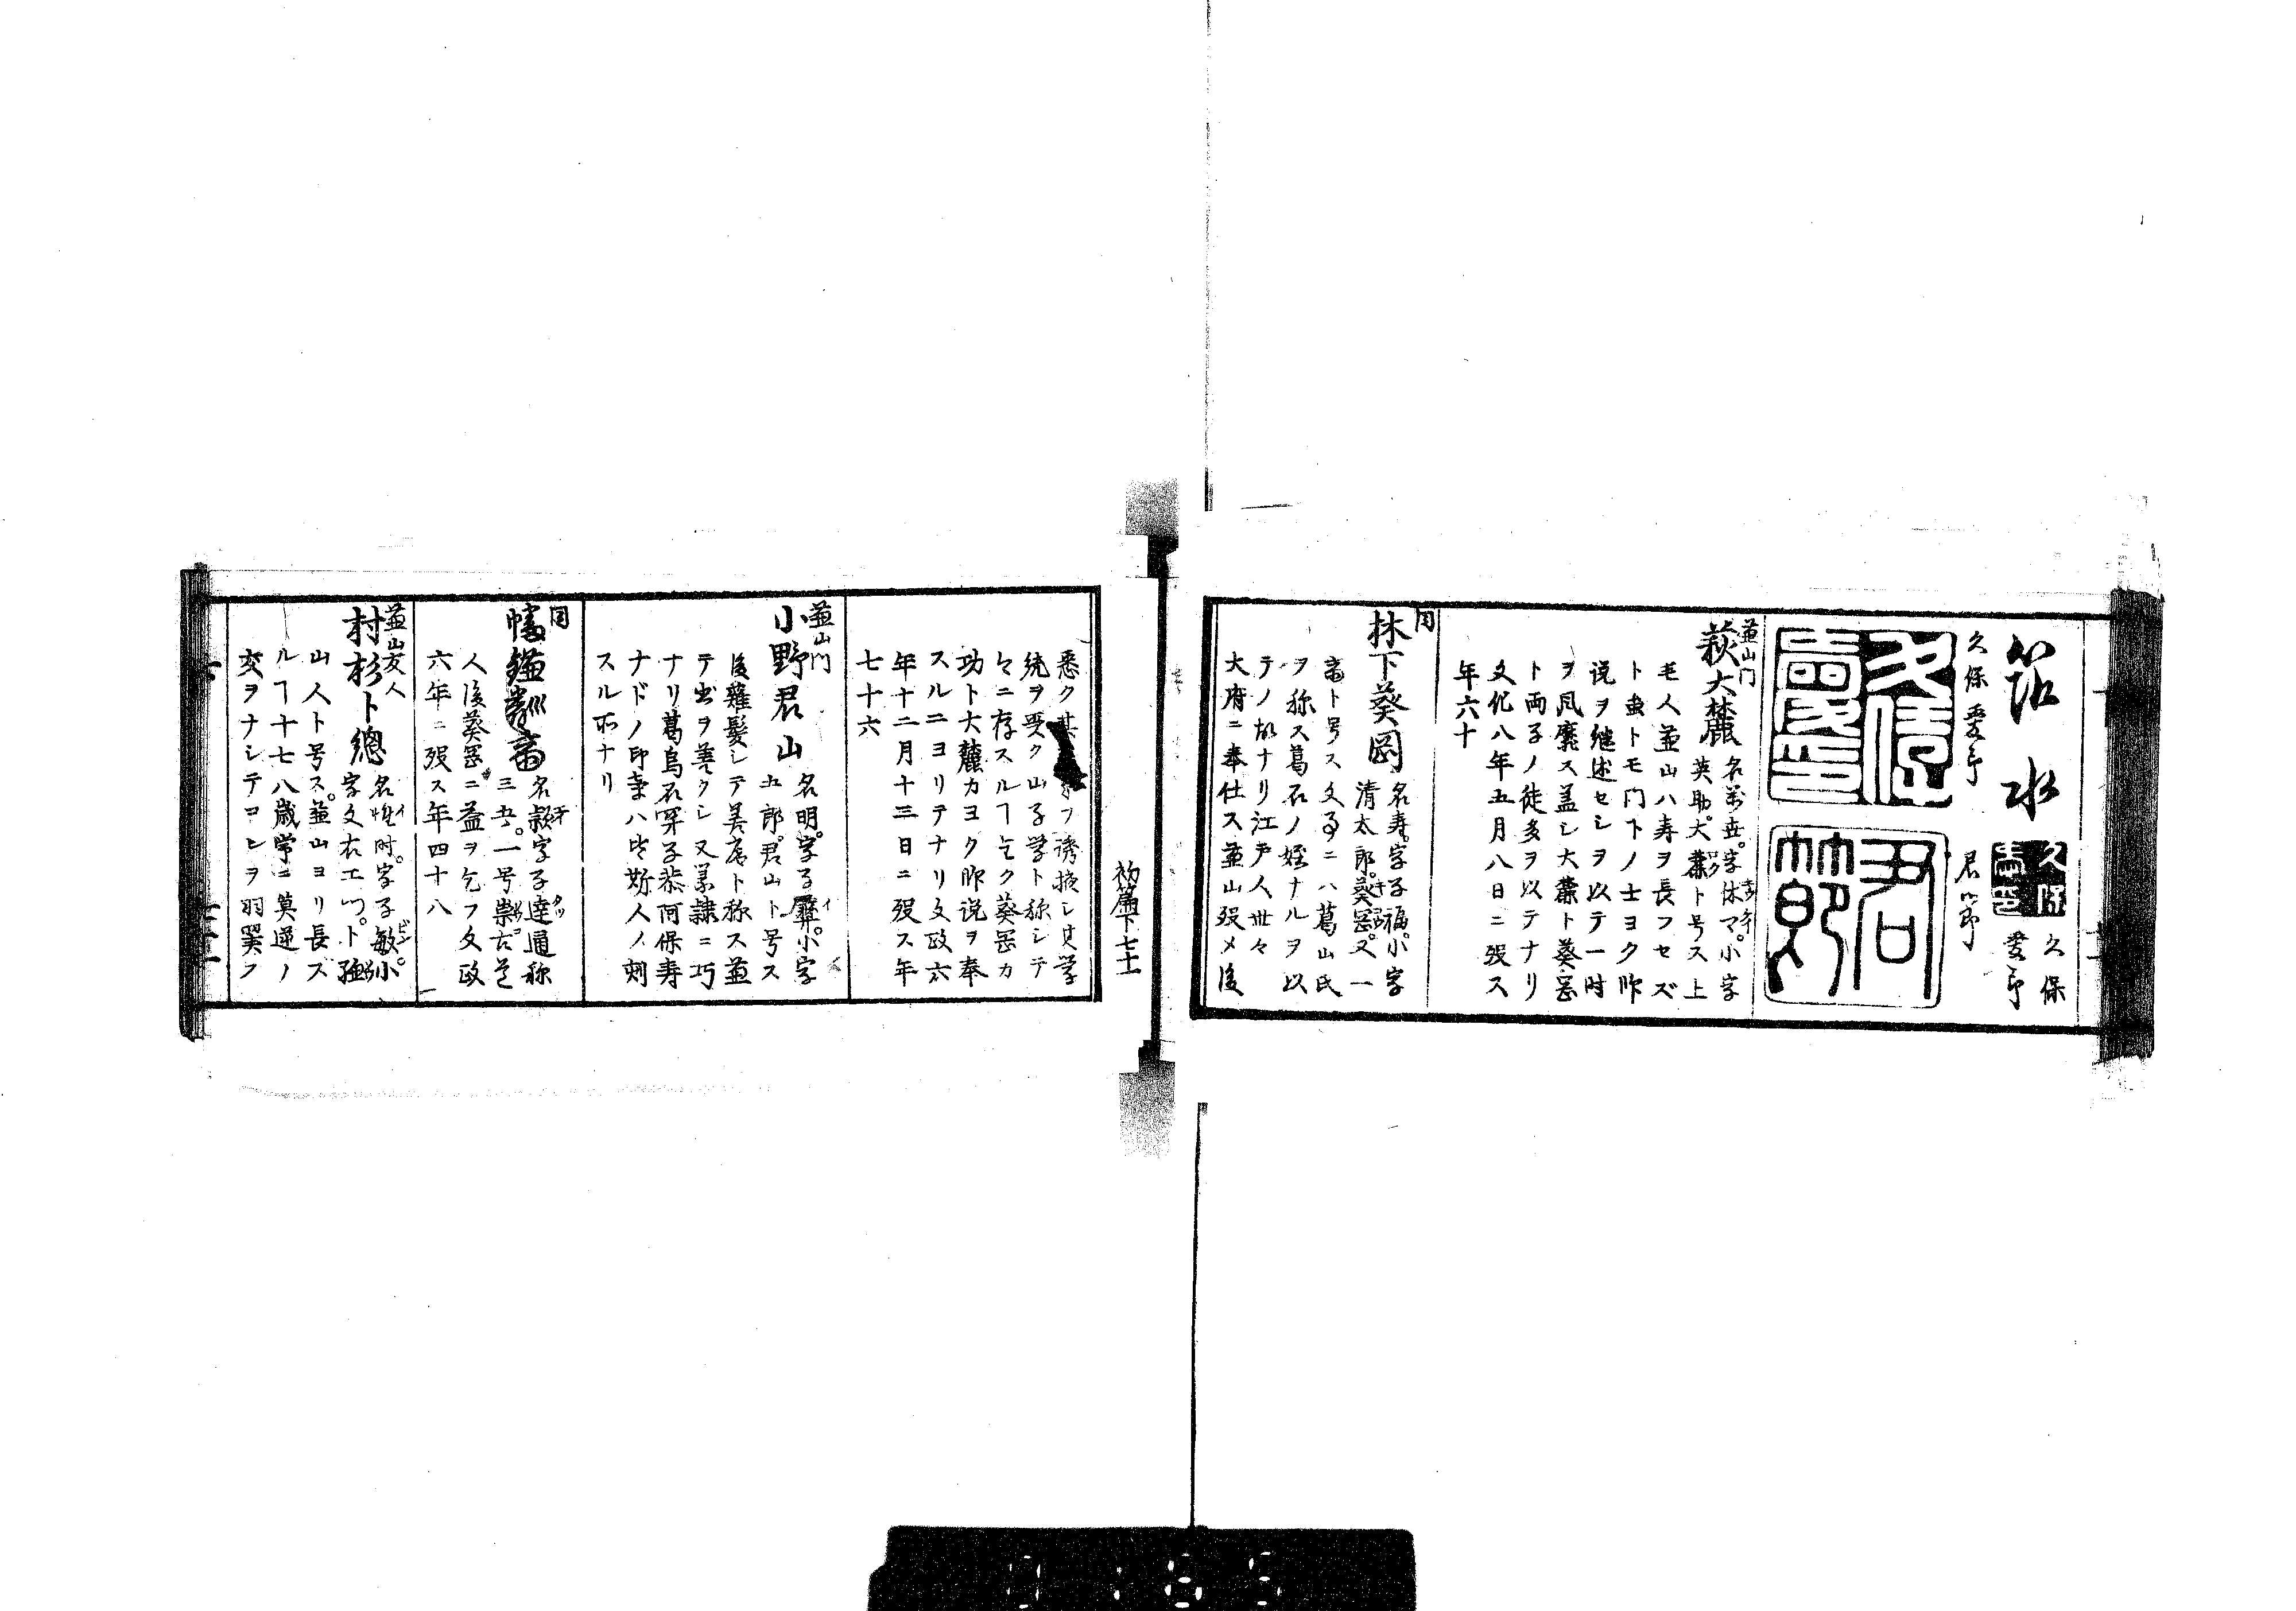 筑水
久保
愛印
久保愛印
君節
益山門
萩大麓
名萬世。字休マ。小字
英助。大麓ト号ス上
毛人益山ハ寿ヲ長フセズ
ト虽トモ门下ノ士ヨク师
说ヲ继述セシヲ以テ一时
ヲ風靡ス盖シ大麓ト葵岡
ト両子ノ徒多ヲ以テナリ
文化八年五月八日ニ殁ス
年六十
同
林下葵岡
名寿。字子福。小字
清太郎。葵岡。又一
斎ト号ス文事ニハ葛山氏
ヲ称ス葛石ノ姪ナルヲ以
テノ故ナリ江戸人世々
大府ニ奉仕ス益山殁メ後
悉ク其
フ誘掖シ其学
统ヲ受ク山子学ト称シテ
今ニ存スルヿ全ク葵岡カ
功ト大麓カヨク师说ヲ奉
スルニヨリテナリ文政六
年十二月十三日ニ殁ス年
七十六
初篇下七十一
益山門
小野君山
名明。字子彜。小字
五郎。君山ト号ス
後薙髪シテ美ト称ス益
テ出ヲ善クシ又篆隷ニ巧
ナリ葛烏石罕子恭河保寿
ナドノ印章ハ皆斯人ノ刻
スル所ナリ
同
名叙字子達通称
三五。一号崇古邑
人後葵岡ニ益ヲ乞フ文政
六年ニ殁ス年四十八
益山友人
村杉卜總
名惟时。字子敏。小
字文右エ门。卜
山人ト号ス。益山ヨリ長ス
ルヿ十七八歳常ニ莫逆ノ
交ヲナシテコレヲ羽翼フ